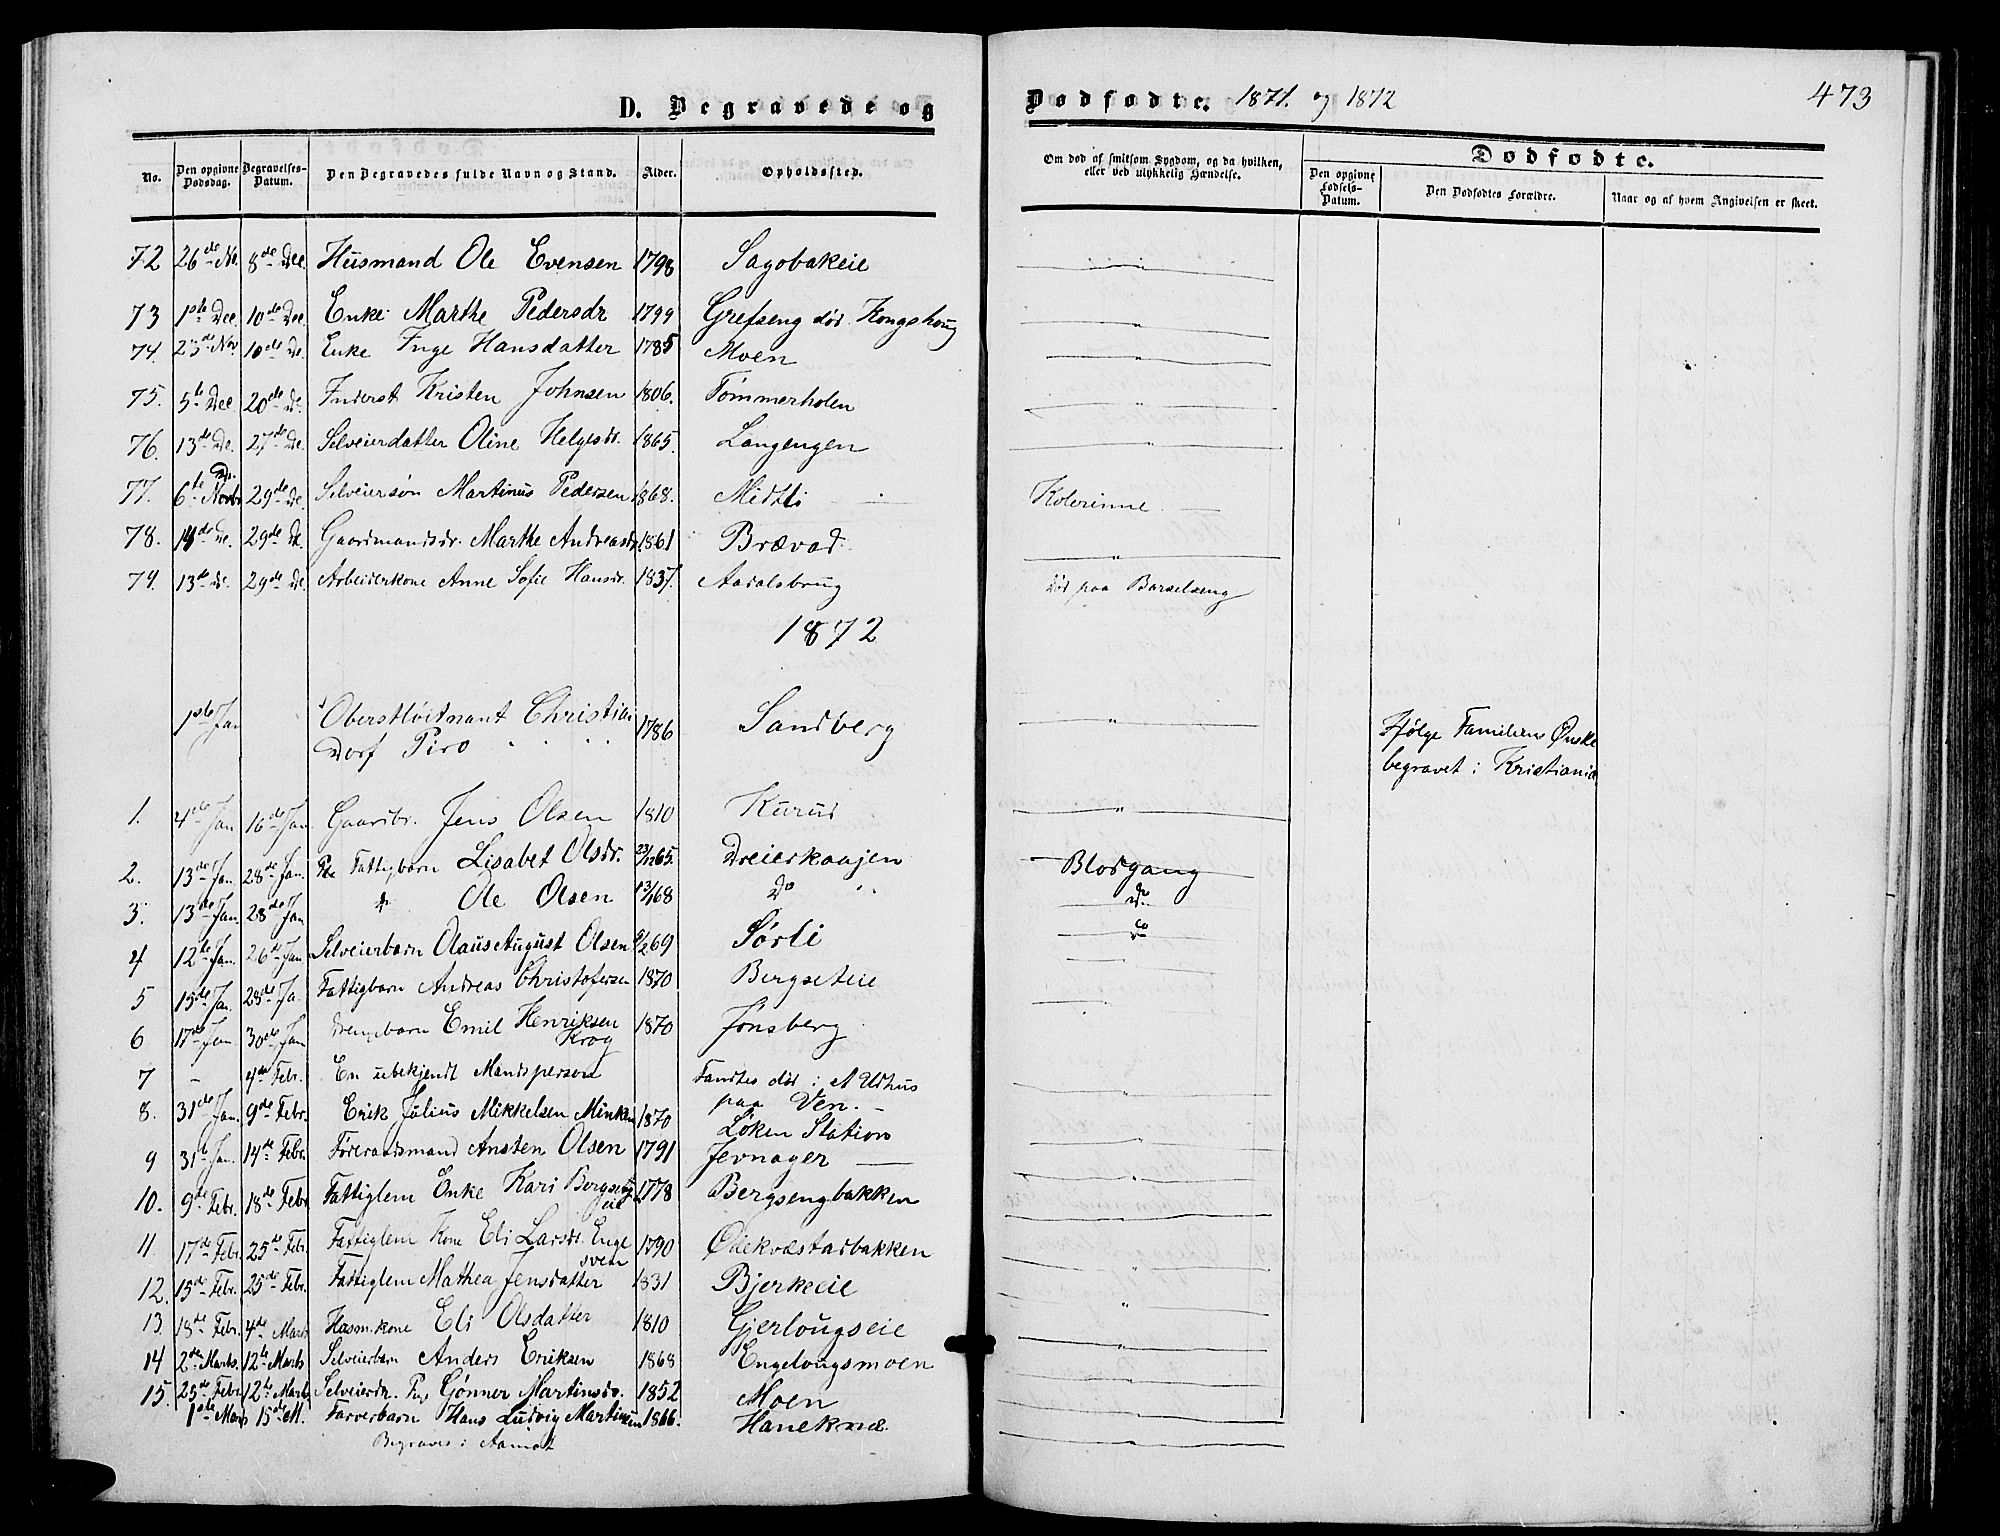 D. Begravede og Dødfødte. 1871. og 1872 473
No. Den opgivne Dødsdag. Begravelses-Datum. Den Begravedes fulde Navn og Stand. Alder. Opholdssted. Om død af smitsom Sygdom, og da hvilken, eller ved ulykkelig Hændelse. Dødfødte. Den opgivne Fødsels-Datum. Den Dødfødtes Forældre. Naar og af hvem Angivelsen er skeet.
72 26de No. 8de Dec. Husmand Ole Evensen 1798 Sagobakeie "
73 1ste Dec. 10de Dec. Enke Marthe Pedersdr 1799 Grefseng død Kongshoug "
74. 23de Nov. 10de De. Enke Inge Hansdatter 1785 Moen "
75. 5te Dec 20de De. Inderst Kristen Johnsen 1806. Tømmerholen "
76. 13de De. 27de De. Selveierdatter Oline Helgesdr. 1865. Langengen "
77. 6te Novbr De. 29de De. Selveiersøn Martinus Pedersen 1868. Midtli Kolerinne.
78. 14de De. 29de De. Gaardmandsdr. Marthe Andreasdr. 1861 Brævad. "
79. 13de De. 29de De. Arbeiderkone Anne Sofie Hansdr. 1837. Aadalsbrug Død paa Barselseng
1872
1ste Jan Oberstløitnant Christian 1786 Sandberg " Ifølge Familiens Ønske
Dorf Piro begravet i Kristiania
1. 4de Jan 16de Jan Gaardbr. Jens Olsen 1810 Kurud "
2. 13de Jan. 28de Jan. Pge Fattigbarn Lisabet Olsdr. 23/12 65. Dreierkaajen Blodgang
3. 13de Jan. 28de Jan do Ole Olsen 13/1 68 Do " do
4 12te Jan. 26de Jan Selveierbarn Olaus August Olsen 9/2 69 Sørli do
5 15de Jan. 28de Ja. Fattigbarn Andreas Christofersen 1870 Bergseteie
6 17de Jan. 30de Jan Drengebarn Emil Henriksen Krog 1870 Jønsberg
7 - 4de Febr. En ubekjendt Mandsperson Fandtes død i et Udhus paa Ven. "
8. 31de Jan. 9de Febr. Erik Julius Mikkelsen Minken 1870 Løken Station "
9 31te Jan. 14de Febr. Føderaadsmand Ansten Olsen 1791 Jevnager "
10. 9de Febr. 18de Febr Fattiglem Enke Kari Bergseng eie 1778 Bergsengbakken
11. 17de Febr. 25de Feb. Fattiglem Kone Eli Larsdr. Enge sveen 1790 Ødekvæstadbakken
12. 15de Febr. 25de Febr. Fattiglem Mathea Jensdatter 1831 Bjerkeeie "
13. 18de Febr. 4de Marts Husm.kone Eli Olsdatter 1810 Gjerlougseie
14 2den Marts. 12te Marts Selveierbarn Anders Eriksen 1868 Engelougsmoen
15. 25de Febr 12te Marts Selveierdr. Pge Gønner Martinsdr. 1852 Moen
1ste Mars 15de M. Farverbarn Hans Ludvig Martinsen 1866. Haneknæ.
Begraves i Aamot